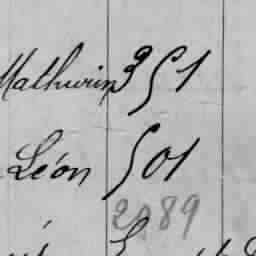 Mathurin 351
Léon 501
2989